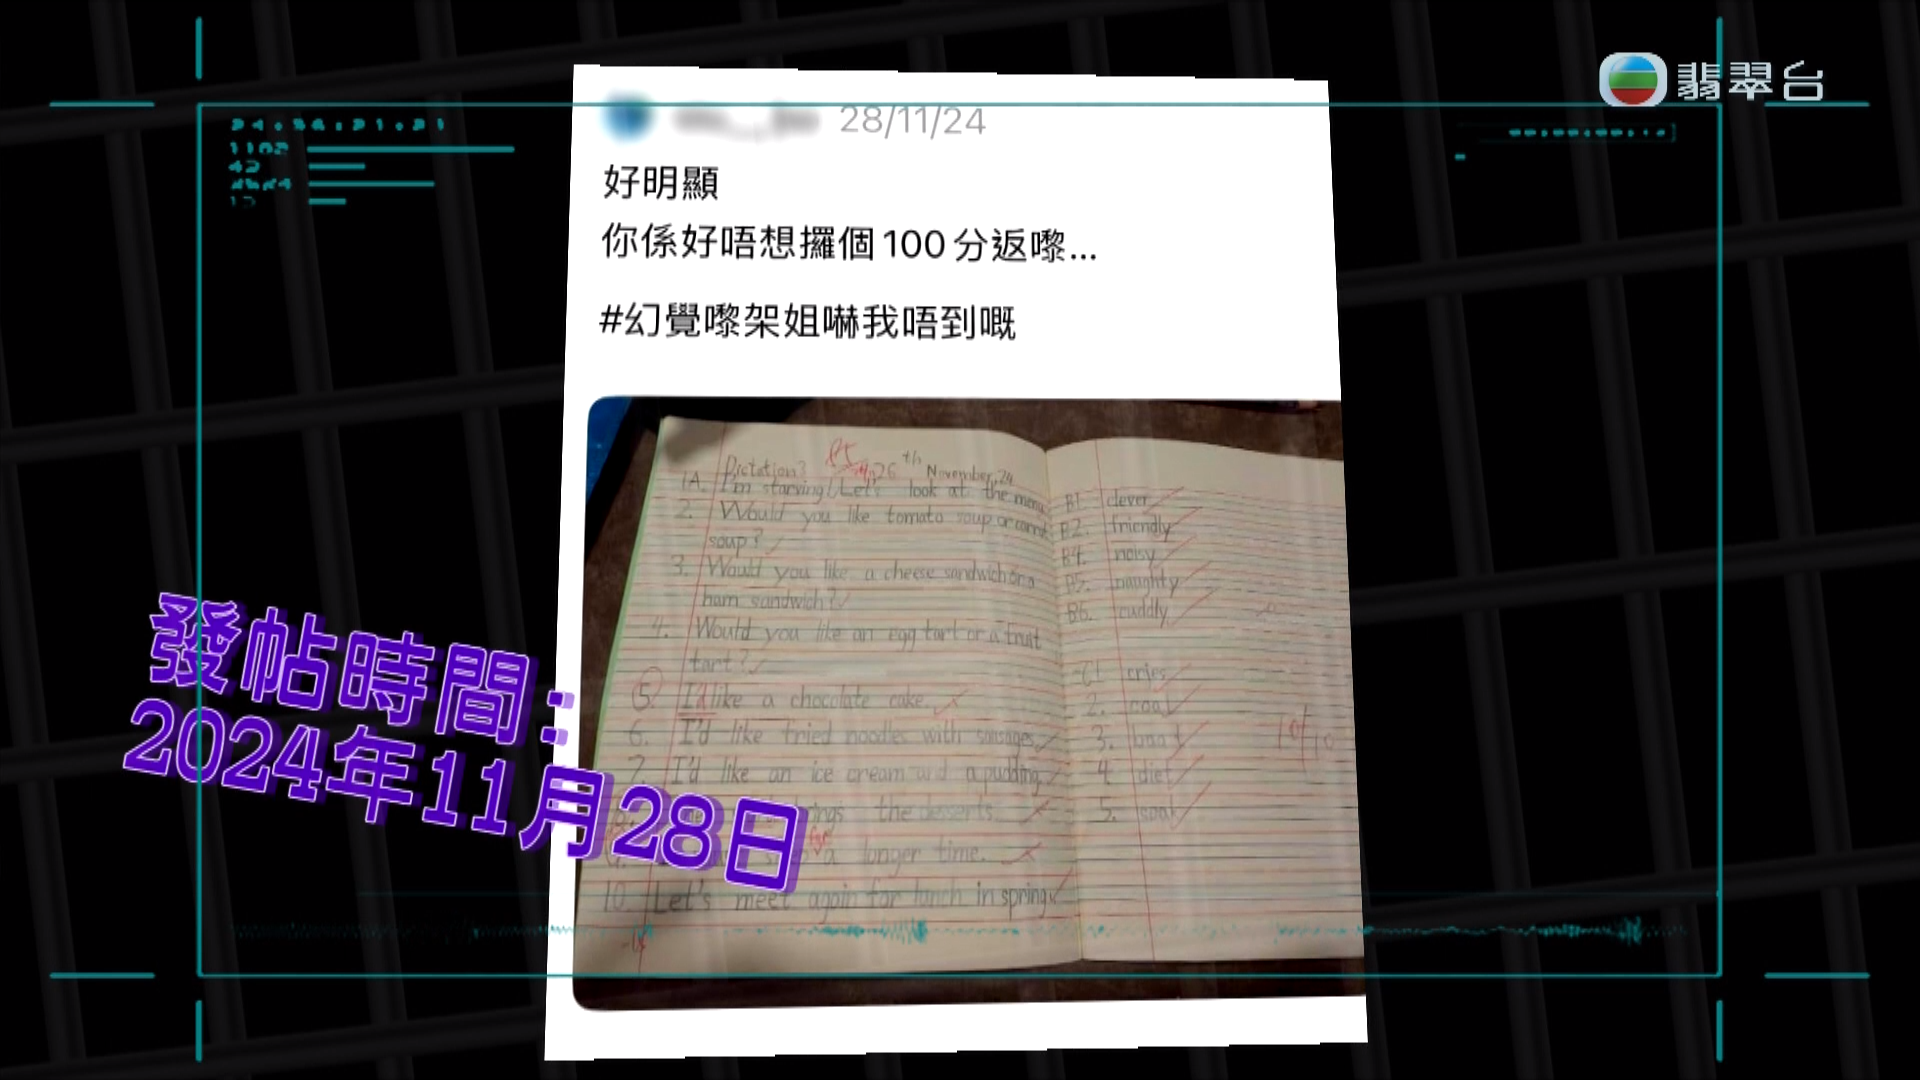 翡翠台
28/11/24
好明顯
你係好唔想攞個100分返嚟...
#幻覺嚟架姐嚇我唔到嘅
發帖時間：
2024年11月28日
Dictation 26th November, 24
1A. I'm starving! Let's look at the menu.
2. Would you like tomato soup or carrot
soup?
3. Would you like a cheese sandwich or a
ham sandwich?
4. Would you like an egg tart or a fruit
tart?
5. I'd like a chocolate cake.
6. I'd like fried noodles with sausages.
7. I'd like an ice cream and a pudding.
the desserts.
for a longer time.
10. Let's meet again for lunch in spring.
B1. clever
B2. friendly
B4. noisy
B5. naughty
B6. cuddly
C1. cries
2. coat
3. boat
4. diet
5. soak